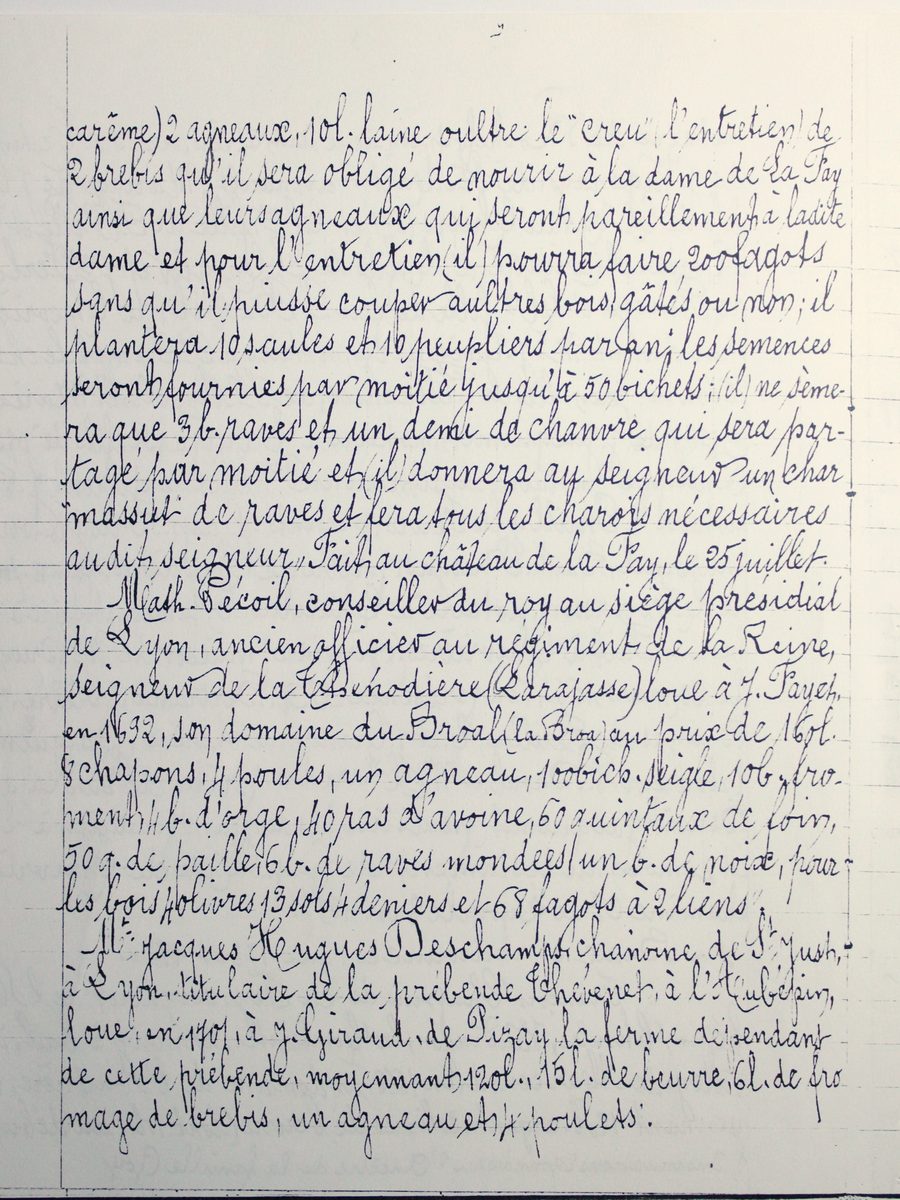 carême) 2 agneaux, 10l. laine oultre le "creu" (l'entretien) de
2 brebis qu'il sera obligé de nourir à la dame de La Fay
ainsi que leurs agneaux qui seront pareillement à ladite
dame et pour l'entretien (il) pourra faire 200 fagots
sans qu'il puisse couper aultres bois, gâtés ou non; il
plantera 10 saules et 10 peupliers par an; les semences
seront fournies par moitié jusqu'à 50 bichets; (il) ne sème-
ra que 3 b. raves et un demi de chanvre qui sera par-
tagé par moitié et (il) donnera au seigneur un char
"massut" de raves et fera tous les charois nécessaires
audit seigneur". Fait au château de la Fay, le 25 juillet.
Math. Pécoil, conseiller du roy au siège présidial
de Lyon, ancien officier au régiment de la Reine,
seigneur de la Thénodière (Larajasse) loue à J. Fayet,
en 1632, son domaine du Broal (la Broa) au prix de 160l.
8 chapons, 4 poules, un agneau, 100 bich. seigle, 10 b. fro-
ment, 4 b. d'orge, 40 ras d'avoine, 60 quintaux de foin,
50 q. de paille, 6 b. de raves mondées, un b. de noix, pour
les bois 40 livres 13 sols 4 deniers et 68 fagots à 2 liens".
Mre Jacques Hugues Deschamps, chanoine de St Just,
à Lyon, titulaire de la prébende Thévenet, à l'Aubépin,
loue, en 1701, à J. Giraud, de Pizay, la ferme dépendant
de cette prébende, moyennant 120l., 15 l. de beurre, 6 l. de fro
mage de brebis, un agneau et 4 poulets".